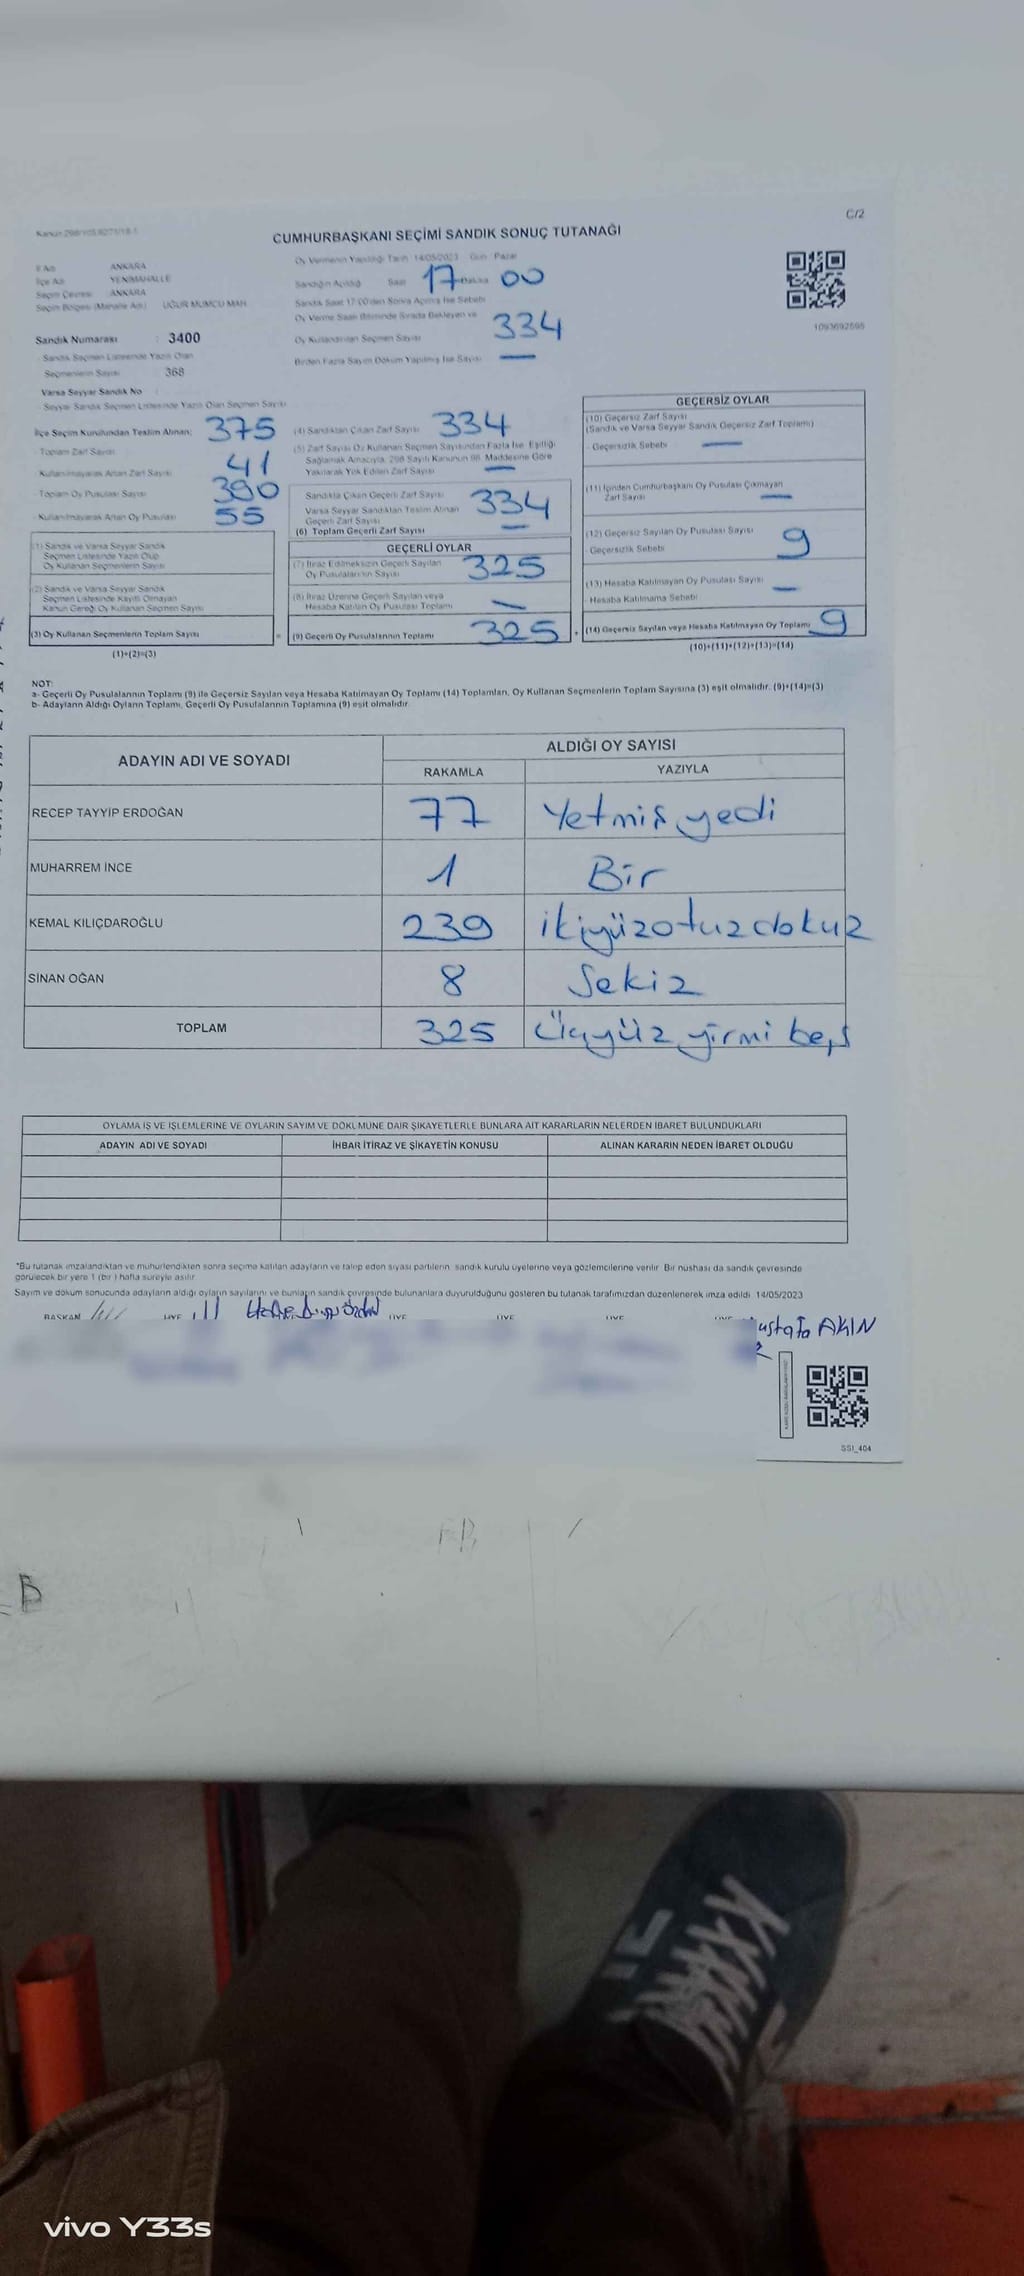 C/2
CUMHURBAŞKANI SEÇİMİ SANDIK SONUÇ TUTANAĞI
İl Adı ANKARA
İlçe Adı YENİMAHALLE
Seçim Çevresi ANKARA
Seçim Bölgesi (Mahalle Adı) UĞUR MUMCU MAH.
Sandık Numarası : 3400
Sandık Seçmen Listesinde Yazılı Olan
Seçmenlerin Sayısı 368
Varsa Seyyar Sandık No
Seyyar Sandık Seçmen Listesinde Yazılı Olan Seçmen Sayısı
Oy Vermenin Yapıldığı Tarih 14/05/2023 Gün Pazar
Sandığın Açıldığı Saat 17 Dakika 00
Sandık Saat 17.00'den Sonra Açılmış İse Sebebi
Oy Verme Saati Bitiminde Sırada Bekleyen ve
Oy Kullandırılan Seçmen Sayısı 334
Birden Fazla Sayım Döküm Yapılmış İse Sayısı —
1093692695
İlçe Seçim Kurulundan Teslim Alınan; 375
Toplam Zarf Sayısı
Kullanılmayarak Artan Zarf Sayısı 41
Toplam Oy Pusulası Sayısı 390
Kullanılmayarak Artan Oy Pusulası 55
(1) Sandık ve Varsa Seyyar Sandık
Seçmen Listesinde Yazılı Olup
Oy Kullanan Seçmenlerin Sayısı
(2) Sandık ve Varsa Seyyar Sandık
Seçmen Listesinde Kayıtlı Olmayan
Kanun Gereği Oy Kullanan Seçmen Sayısı
(3) Oy Kullanan Seçmenlerin Toplam Sayısı
(1)+(2)=(3)
(4) Sandıktan Çıkan Zarf Sayısı 334
(5) Zarf Sayısı Oy Kullanan Seçmen Sayısından Fazla İse Eşitliği
Sağlamak Amacıyla, 298 Sayılı Kanunun 98. Maddesine Göre
Yakılarak Yok Edilen Zarf Sayısı —
Sandıkta Çıkan Geçerli Zarf Sayısı 334
Varsa Seyyar Sandıktan Teslim Alınan
Geçerli Zarf Sayısı —
(6) Toplam Geçerli Zarf Sayısı
GEÇERLİ OYLAR
(7) İtiraz Edilmeksizin Geçerli Sayılan
Oy Pusulalarının Sayısı 325
(8) İtiraz Üzerine Geçerli Sayılan veya
Hesaba Katılan Oy Pusulası Toplamı —
(9) Geçerli Oy Pusulalarının Toplamı 325
GEÇERSİZ OYLAR
(10) Geçersiz Zarf Sayısı
(Sandık ve Varsa Seyyar Sandık Geçersiz Zarf Toplamı)
- Geçersizlik Sebebi —
(11) İçinden Cumhurbaşkanı Oy Pusulası Çıkmayan
Zarf Sayısı —
(12) Geçersiz Sayılan Oy Pusulası Sayısı 9
Geçersizlik Sebebi
(13) Hesaba Katılmayan Oy Pusulası Sayısı —
- Hesaba Katılmama Sebebi
(14) Geçersiz Sayılan veya Hesaba Katılmayan Oy Toplamı 9
(10)+(11)+(12)+(13)=(14)
NOT:
a- Geçerli Oy Pusulalarının Toplamı (9) ile Geçersiz Sayılan veya Hesaba Katılmayan Oy Toplamı (14) Toplamları, Oy Kullanan Seçmenlerin Toplam Sayısına (3) eşit olmalıdır. (9)+(14)=(3)
b- Adayların Aldığı Oyların Toplamı, Geçerli Oy Pusulalarının Toplamına (9) eşit olmalıdır.
ADAYIN ADI VE SOYADI ALDIĞI OY SAYISI
RAKAMLA YAZIYLA
RECEP TAYYİP ERDOĞAN 77 Yetmiş yedi
MUHARREM İNCE 1 Bir
KEMAL KILIÇDAROĞLU 239 ikiyüzotuzdokuz
SİNAN OĞAN 8 Sekiz
TOPLAM 325 Üçyüz yirmi beş
OYLAMA İŞ VE İŞLEMLERİNE VE OYLARIN SAYIM VE DÖKÜMÜNE DAİR ŞİKAYETLERLE BUNLARA AİT KARARLARIN NELERDEN İBARET BULUNDUKLARI
ADAYIN ADI VE SOYADI İHBAR İTİRAZ VE ŞİKAYETİN KONUSU ALINAN KARARIN NEDEN İBARET OLDUĞU
*Bu tutanak imzalandıktan ve mühürlendikten sonra seçime katılan adayların ve talep eden siyasi partilerin sandık kurulu üyelerine veya gözlemcilerine verilir. Bir nüshası da sandık çevresinde
görülecek bir yere 1 (bir) hafta süreyle asılır.
Sayım ve döküm sonucunda adayların aldığı oyların sayılarını ve bunların sandık çevresinde bulunanlara duyurulduğunu gösteren bu tutanak tarafımızdan düzenlenerek imza edildi. 14/05/2023
BAŞKAN ÜYE ÜYE ÜYE ÜYE ÜYE
ustafa AKIN
SSI_404
B
vivo Y33s